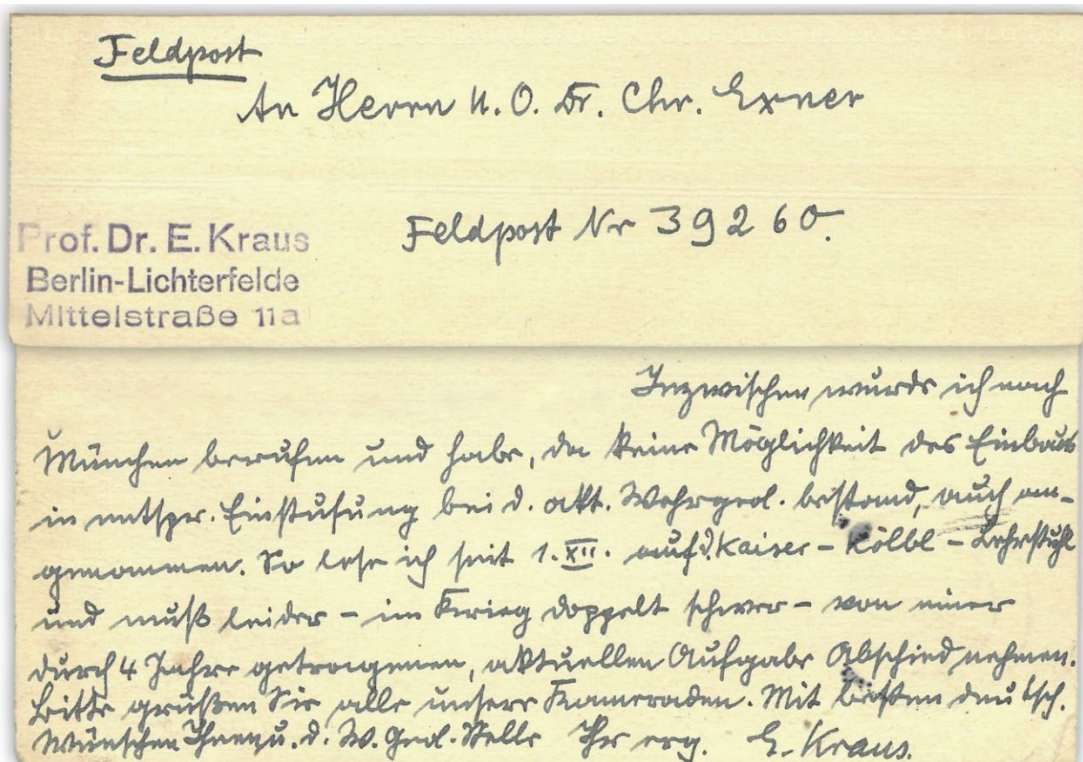 Feldpost
An Herrn U.O. Dr. Chr. Exner
Feldpost Nr 39260.
Prof. Dr. E. Kraus
Berlin-Lichterfelde
Mittelstraße 11a
Inzwischen wurde ich nach
München berufen und habe, da keine Möglichkeit des Einbaus
in entspr. Einstufung bei d. akt. Wehrgeol. bestand, auch an-
genommen. So lese ich seit 1. XII. auf d. Kaiser - Kölbl - Lehrstuhl
und muß leider - im Krieg doppelt schwer - von einer
durch 4 Jahre getragenen, aktuellen Aufgabe Abschied nehmen.
Bitte grüßen Sie alle unsere Kameraden. Mit besten deutsch.
Wünschen Ihnen u. d. W. Geol. Stelle Ihr erg. E. Kraus.